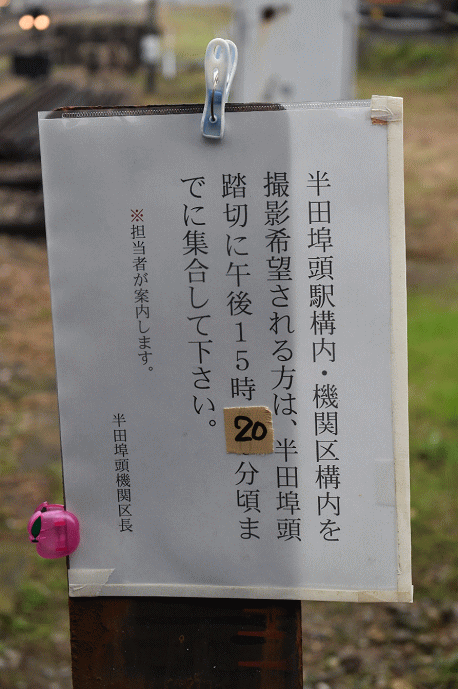 半田埠頭駅構内・機関区構内を
撮影希望される方は、半田埠頭
踏切に午後15時20分頃ま
でに集合して下さい。
※担当者が案内します。
半田埠頭機関区長